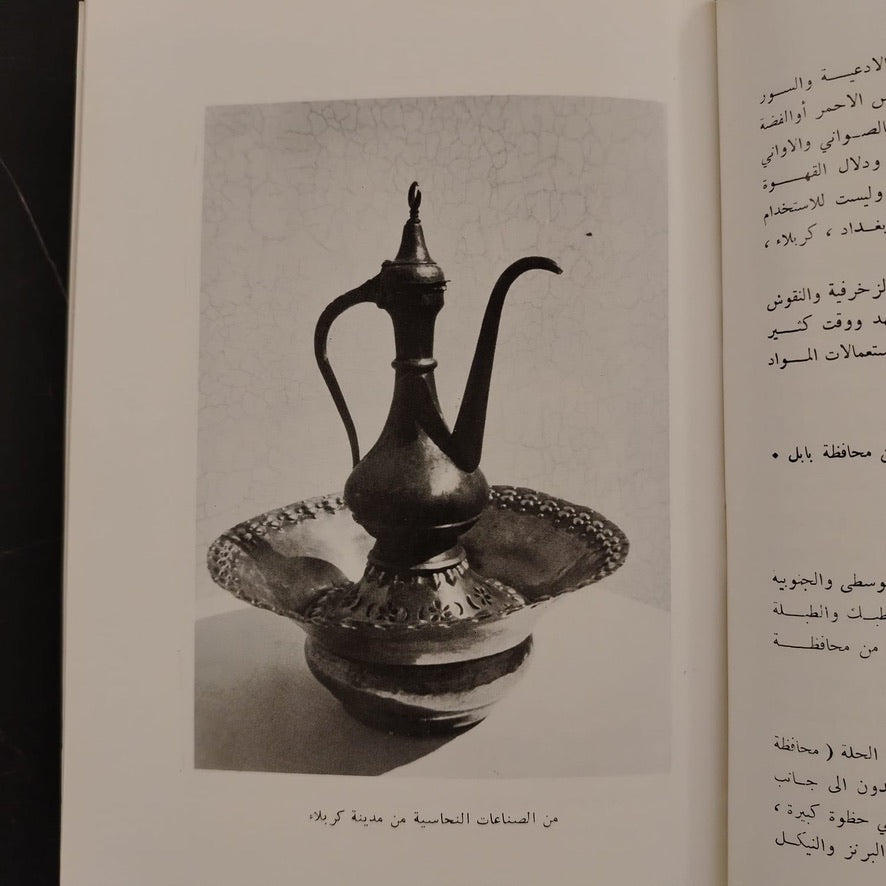 من الصناعات النحاسية من مدينة كربلاء
الادعية والسور
الاحمر أوالفضة
الصواني والاواني
ودلال القهوة
وليست للاستخدام
بغداد ، كربلاء ،
الزخرفية والنقوش
ووقت كثير
ستعمالات المواد
محافظة بابل .
وسطى والجنوبية
والطبلة
من محافظة
الحلة ( محافظة
الى جانب
حظوة كبيرة ،
البرنز والنيكل